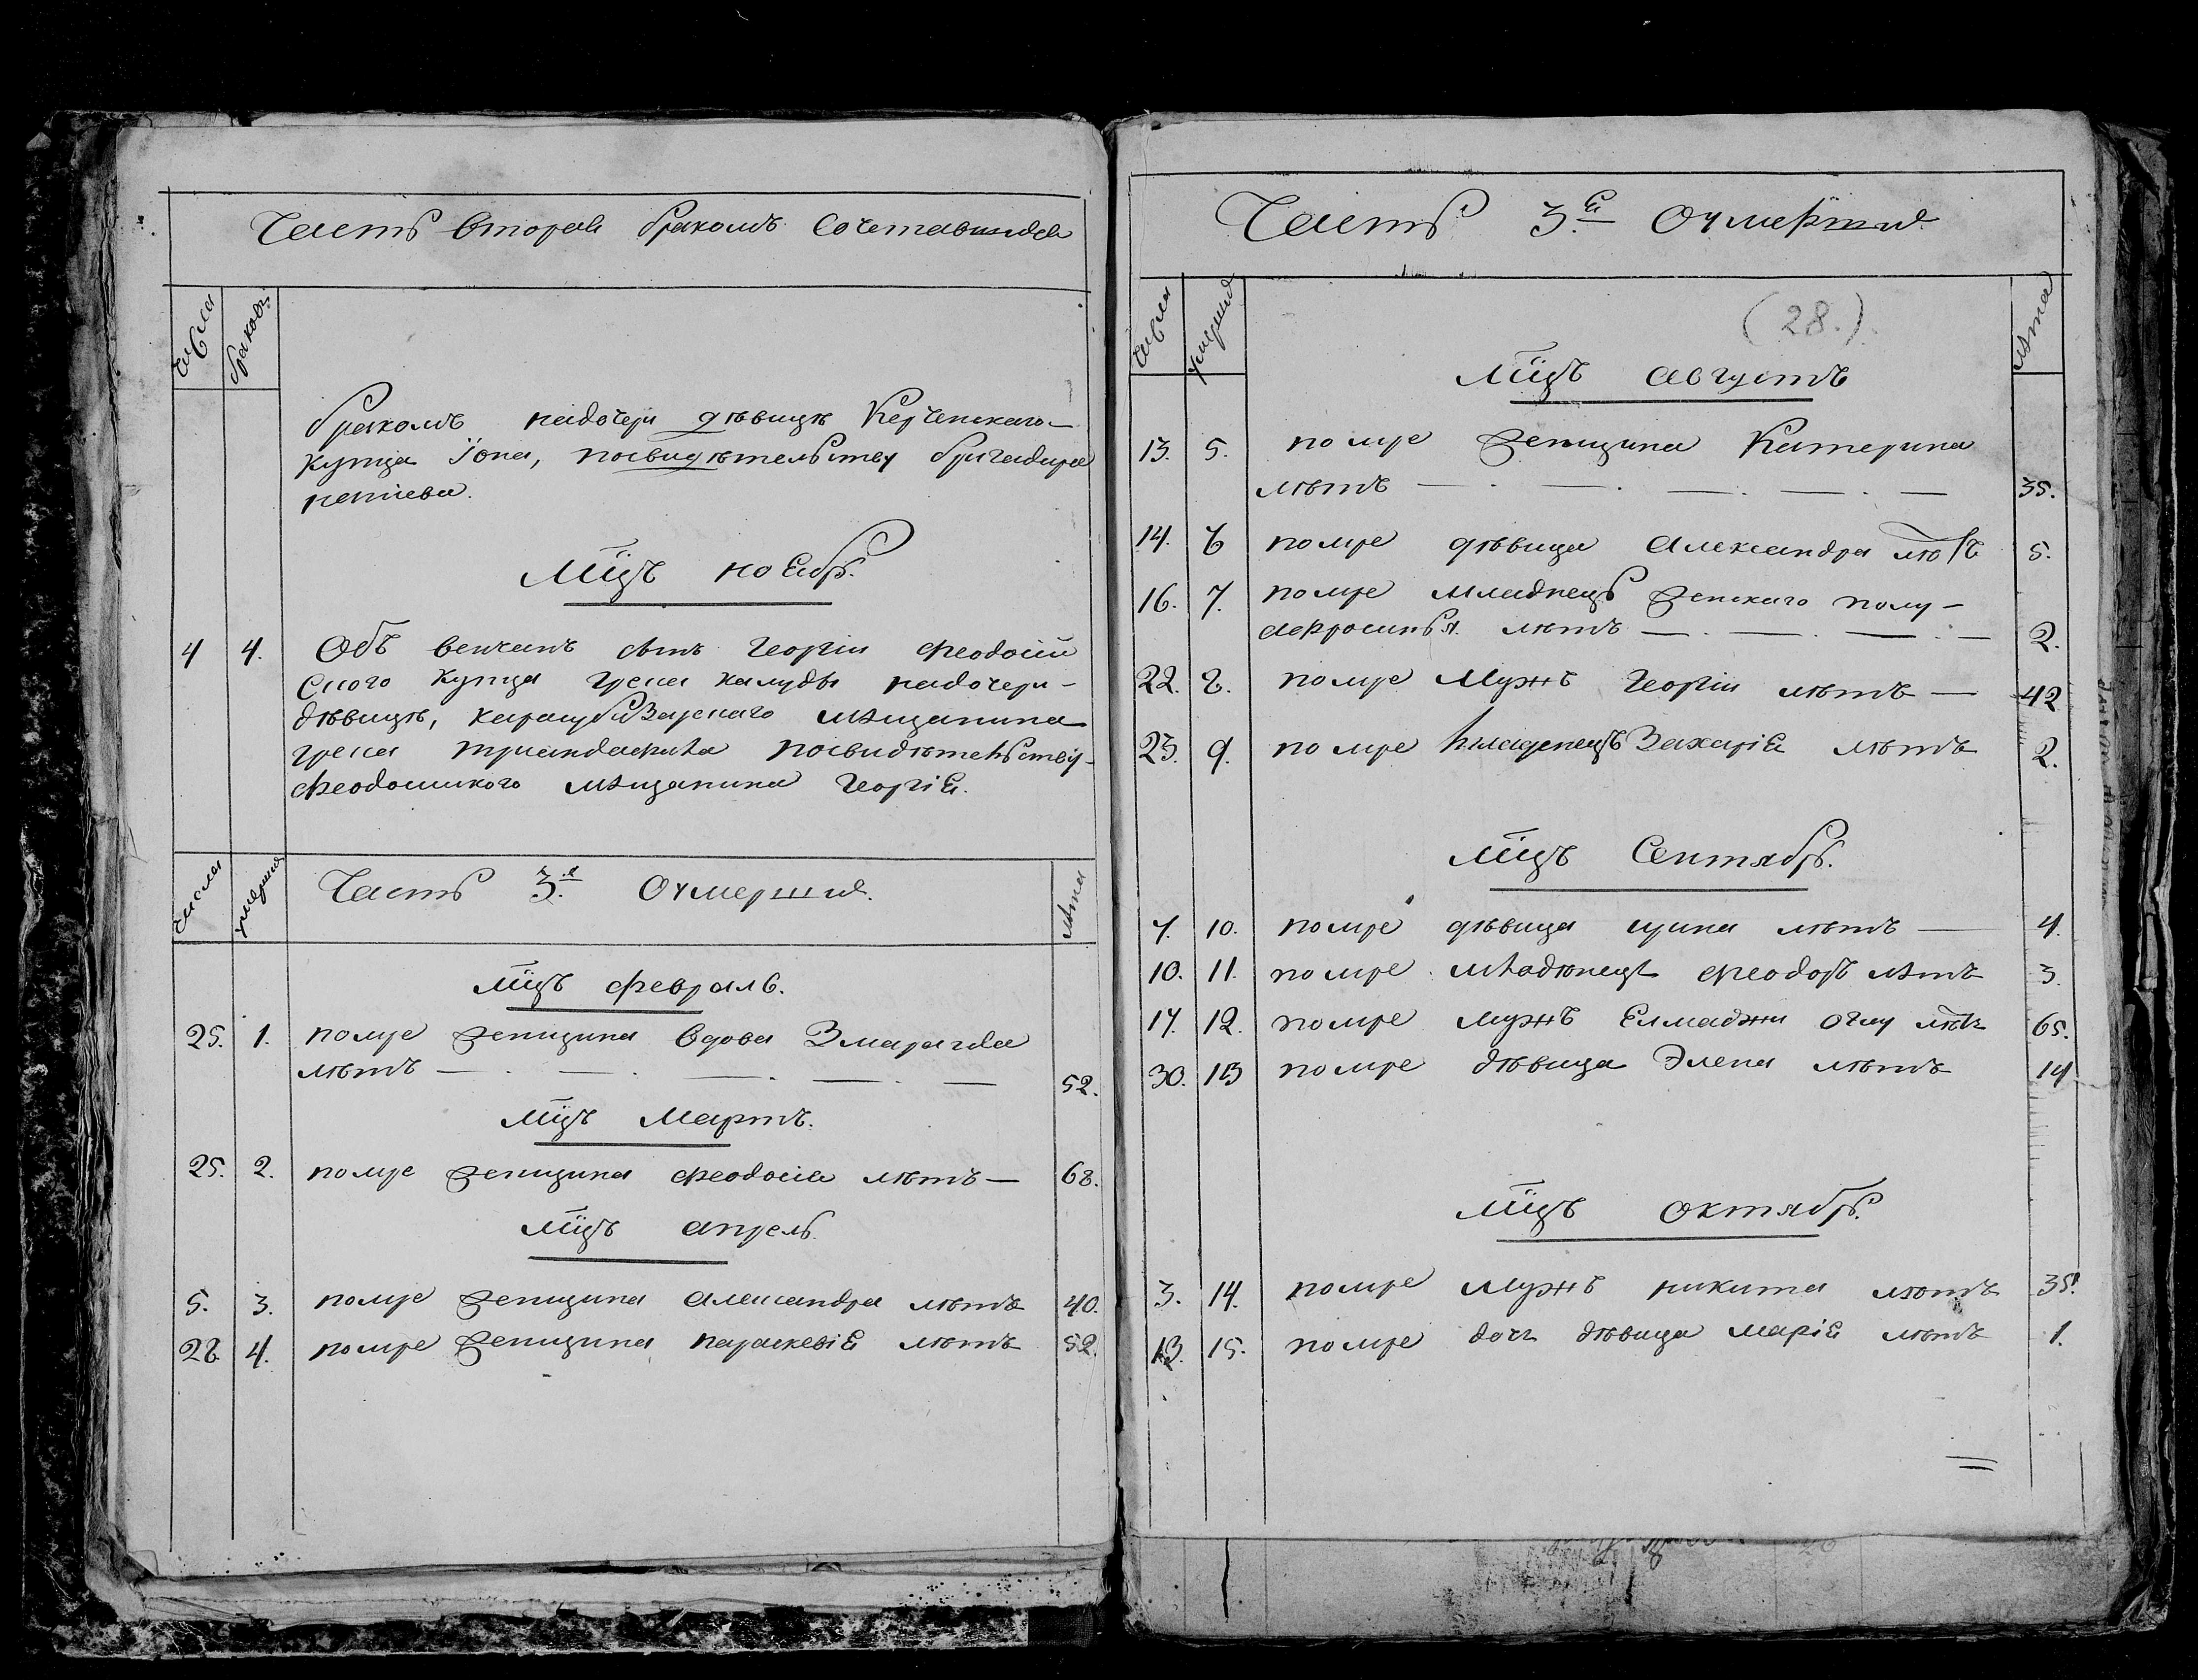 Часть вторая бракомъ сочетавшихся
Числа
браковъ
бракомъ надочери дѣвицѣ Керченскаго
Купца Iона, посвидѣтельству бригадира
Мцъ ноебр.
4 4. Обѣ венчанъ сынъ Георгiи феодосiй
ского Купца грека калуды надочери
дѣвицѣ, карасубазарскаго мѣщанина
грека триандафила посвидѣтельству
феодосийкого мѣщанина Георгiя.
числа
умершие
Часть 3.я Оумершие.
лѣта
Мцъ февраль.
25. 1. помре женщина вдова Змарагда
лѣтъ 52.
Мцъ Мартъ.
25. 2. помре женщина феодосiя лѣтъ 68.
Мцъ апрель
5. 3. помре женщина александра лѣтъ 40.
28 4. помре женщина параскевiя лѣтъ 52.
Часть 3.я Оумершие
Числа
умершие
лѣта
(28.)
Мцъ августъ
13. 5. помре женщина Катерина
лѣтъ 35.
14. 6 помре дѣвица александра лѣтъ 5.
16. 7. помре младнецъ женскаго полу
афросинья. лѣтъ 2.
22. 8. помре Мужъ Георгiи лѣтъ 42
23. 9. помре младенецъ Захарiя лѣтъ 2.
Мцъ Сентябр.
7. 10. помре дѣвица ирина лѣтъ 4.
10. 11. помре младѣнецъ феодоръ лѣтъ 3.
17. 12. помре мужъ Елмаджи оглу лѣтъ 65.
30. 13 помре дѣвица Элена лѣтъ 14
Мцъ октябр.
3. 14. помре мужъ никита лѣтъ 35.
13. 15. помре дочъ дѣвица марiя лѣтъ 1.